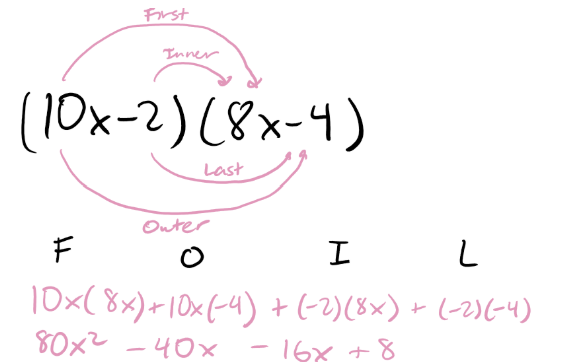 First
Inner
(10x-2)(8x-4)
Last
Outer
F O I L
10x(8x)+10x(-4) + (-2)(8x) + (-2)(-4)
80x² - 40x - 16x + 8